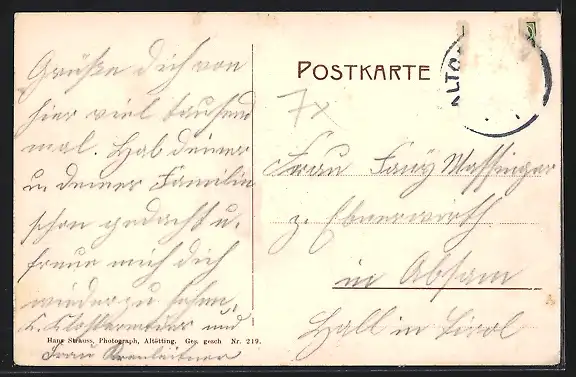 Grüße dich von
hier viel tausend
mal. Hab deiner
u. deiner Familie
schon gedacht u.
freue mich dich
wieder zu sehen,
und
Frau
Hans Strauss, Photograph, Altötting. Ges. gesch Nr. 219.
POSTKARTE
ALTÖ
7x
Frau Fany
z. Ebnerwirth
in Absam
Hall in Tirol